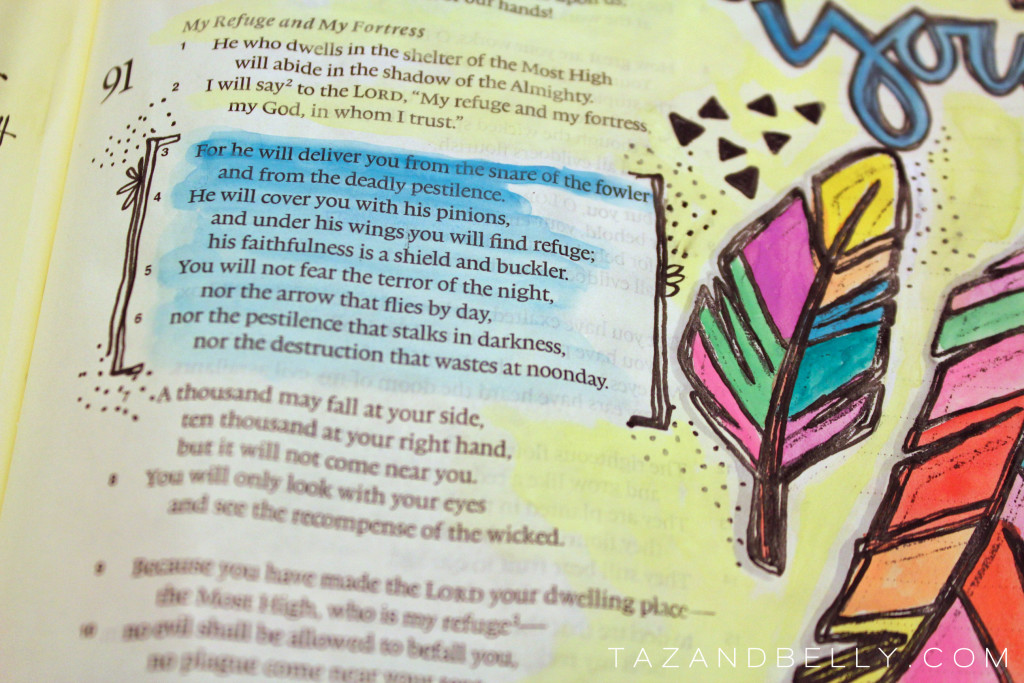 our hands!
My Refuge and My Fortress
91
1 He who dwells in the shelter of the Most High
will abide in the shadow of the Almighty.
2 I will say² to the LORD, “My refuge and my fortress,
my God, in whom I trust.”
3 For he will deliver you from the snare of the fowler
and from the deadly pestilence.
4 He will cover you with his pinions,
and under his wings you will find refuge;
his faithfulness is a shield and buckler.
5 You will not fear the terror of the night,
nor the arrow that flies by day,
6 nor the pestilence that stalks in darkness,
nor the destruction that wastes at noonday.
7 A thousand may fall at your side,
ten thousand at your right hand,
but it will not come near you.
8 You will only look with your eyes
and see the recompense of the wicked.
9 Because you have made the LORD your dwelling place—
the Most High, who is my refuge³—
10 no evil shall be allowed to befall you,
no plague come near your tent.
you
TAZANDBELLY.COM